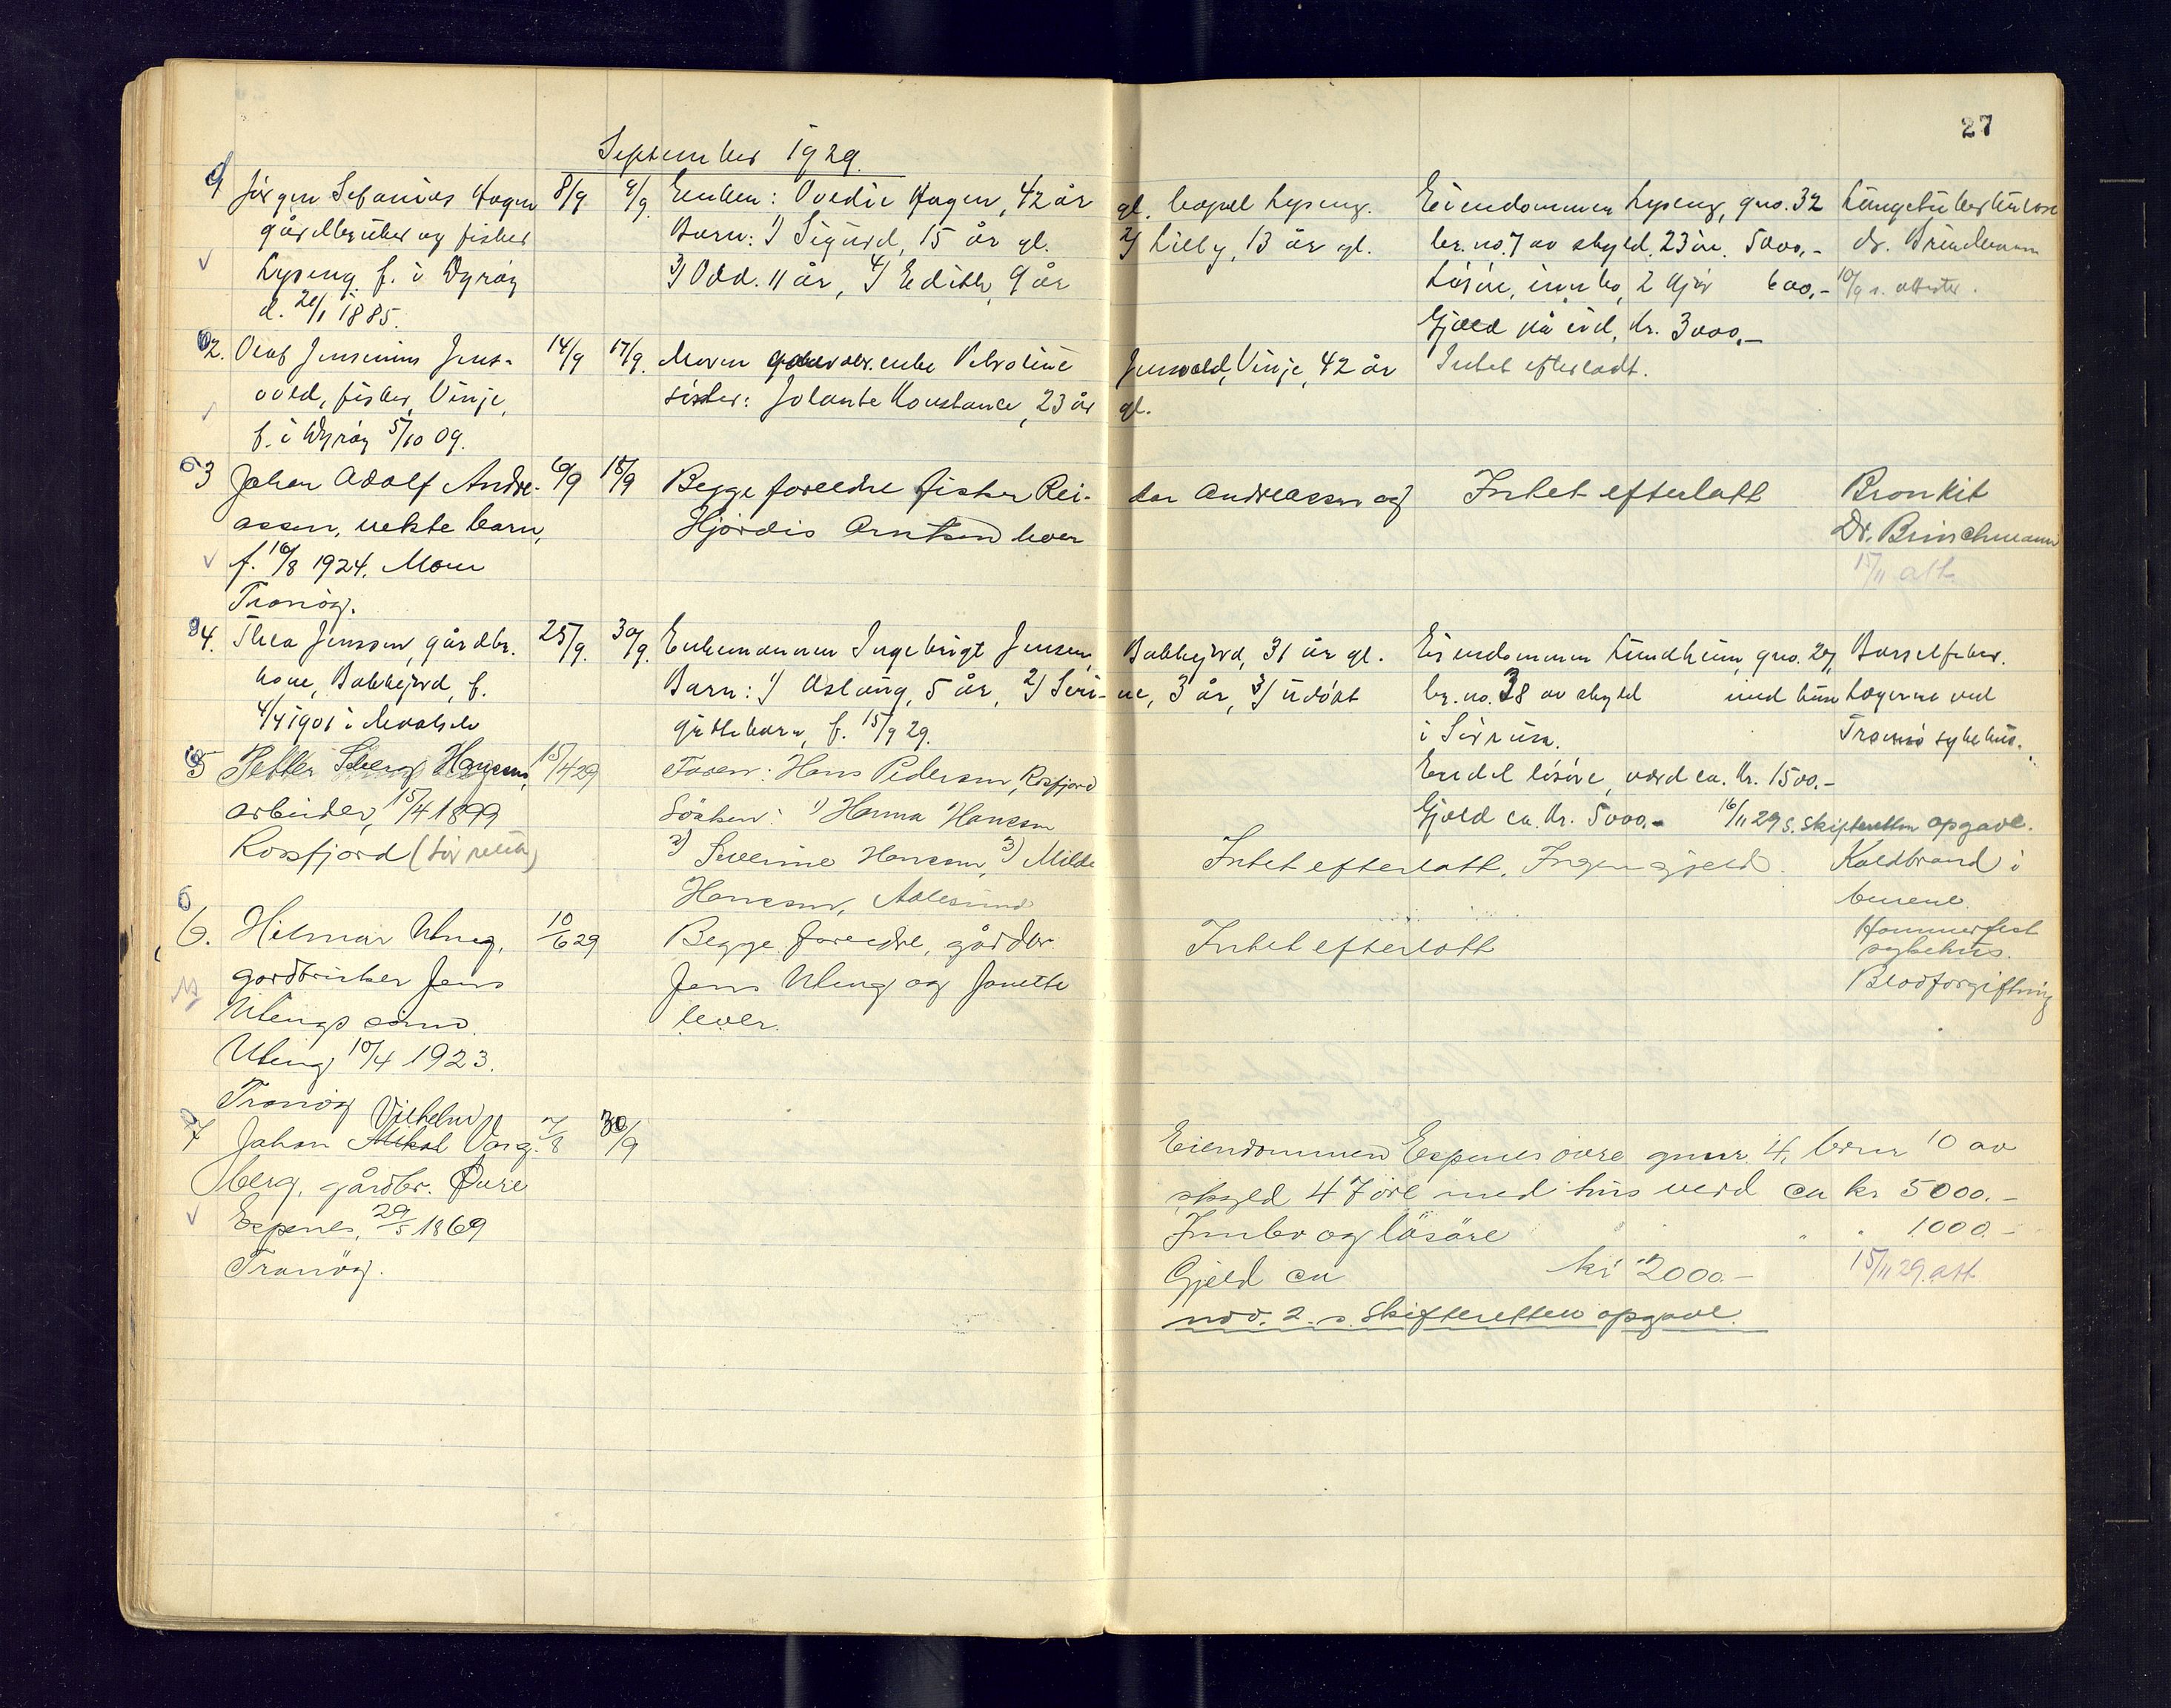 27
September 1929.
1 Jörgen Sefanias Hagen 8/9 9/9. Enken: Ovedie Hagen, 42 år gl. Lyseng. Eiendommen Lyseng, gno. 32 Lungetuberkulose
gårdbruker og fisker Barn: 1) Sigurd, 15 år gl. 2) Lilly, 13 år gl. br. no. 7 av skyld. 23 öre. 5000,- dr. Brinchmann
Lyseng f. i Dyröy 3) Odd. 11 år, 4) Edith, 9 år Lösöre, innbo, 2 kjör 600,- 10/9 s. attester.
d. 20/1 1885. Gjeld på eid, kr. 3000,-
2. Olaf Jensenius Jens- 14/9 17/9. Moren enke Petroline Jensvold, Vinje, 42 år Intet efterladt.
vold, fisker, Vinje, söster: Jolante Konstance, 23 år gl.
f. i Dyröy 5/10 09.
3 Johan Adolf Andre- 6/9 18/9 Begge foreldre fisker Rei- dar Andreassen og Intet efterlatt Bronkit
assen, uekte barn, Hjördis Arntsen lever Dr. Brinchmann
f. 16/8 1924. Moen 15/11 att.
Tranöy.
4. Thea Jenssen, gårdbr. 25/9. 30/9. Enkemannen Ingebrigt Jensen, Bakkejord, 31 år gl. Eiendommen Lundheim, gno. 27, Barselfeber.
kone, Bakkejord, f. Barn: 1) Aslaug, 5 år, 2) Seri- ne, 3 år, 3) udöpt br. no. 38 av skyld med hus Lægerne ved
4/4 1901 i Maalselv guttebarn, f. 15/9 29. i Sörreisa. Tromsö sykehus.
Endel lösöre, verd ca. kr. 1500.-
Gjeld ca. kr. 5000.- 16/11 29 s. skifteretten opgave.
5 Petter Hansen, 15/4 29 Faren: Hans Pedersen, Rosfjord
arbeider, 15/4 1899 Sösken: 1) Hanna Hansen
Rossfjord (Sörreisa) 2) Severine Hansen, 3) Milda Intet efterlatt. Ingen gjeld. Koldbrand i
Hansen, Aalesund benene.
Hammerfest
sykehus.
6. Hilmar Uteng, 10/6 29 Begge foreldre, gårdbr. Intet efterlatt Blodforgiftning
gardbruker Jens Jens Uteng og Janette
Utengs sönn. lever.
Uteng 10/4 1923.
Tranöy
7 Johan Mikal Vilhelm Varg- 7/8 30/9 Eiendommen Espenes övre gnur. 4, brnr 10 av
berg, gårdbr. Övre skyld 47 öre med hus verd ca kr 5000.-
Espenes, 29/5 1869 Innbo og lösöre " " 1000.-
Tranöy. Gjeld ca kr 2000.- 15/11 29. att
nov. 2. s. skifteretten opgave.